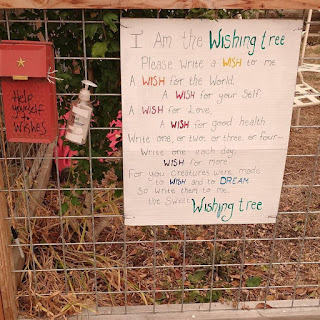 I Am the Wishing tree
Please write a WISH to me
A WISH for the World,
A WISH for your Self.
A WISH for Love,
A WISH for good health
Write one, or two, or three, or four—
Write one each day,
WISH for more
For you creatures were made
to WISH and to DREAM
So write them to me,
the Sweet Wishing tree
Help
yourself
to
Wishes